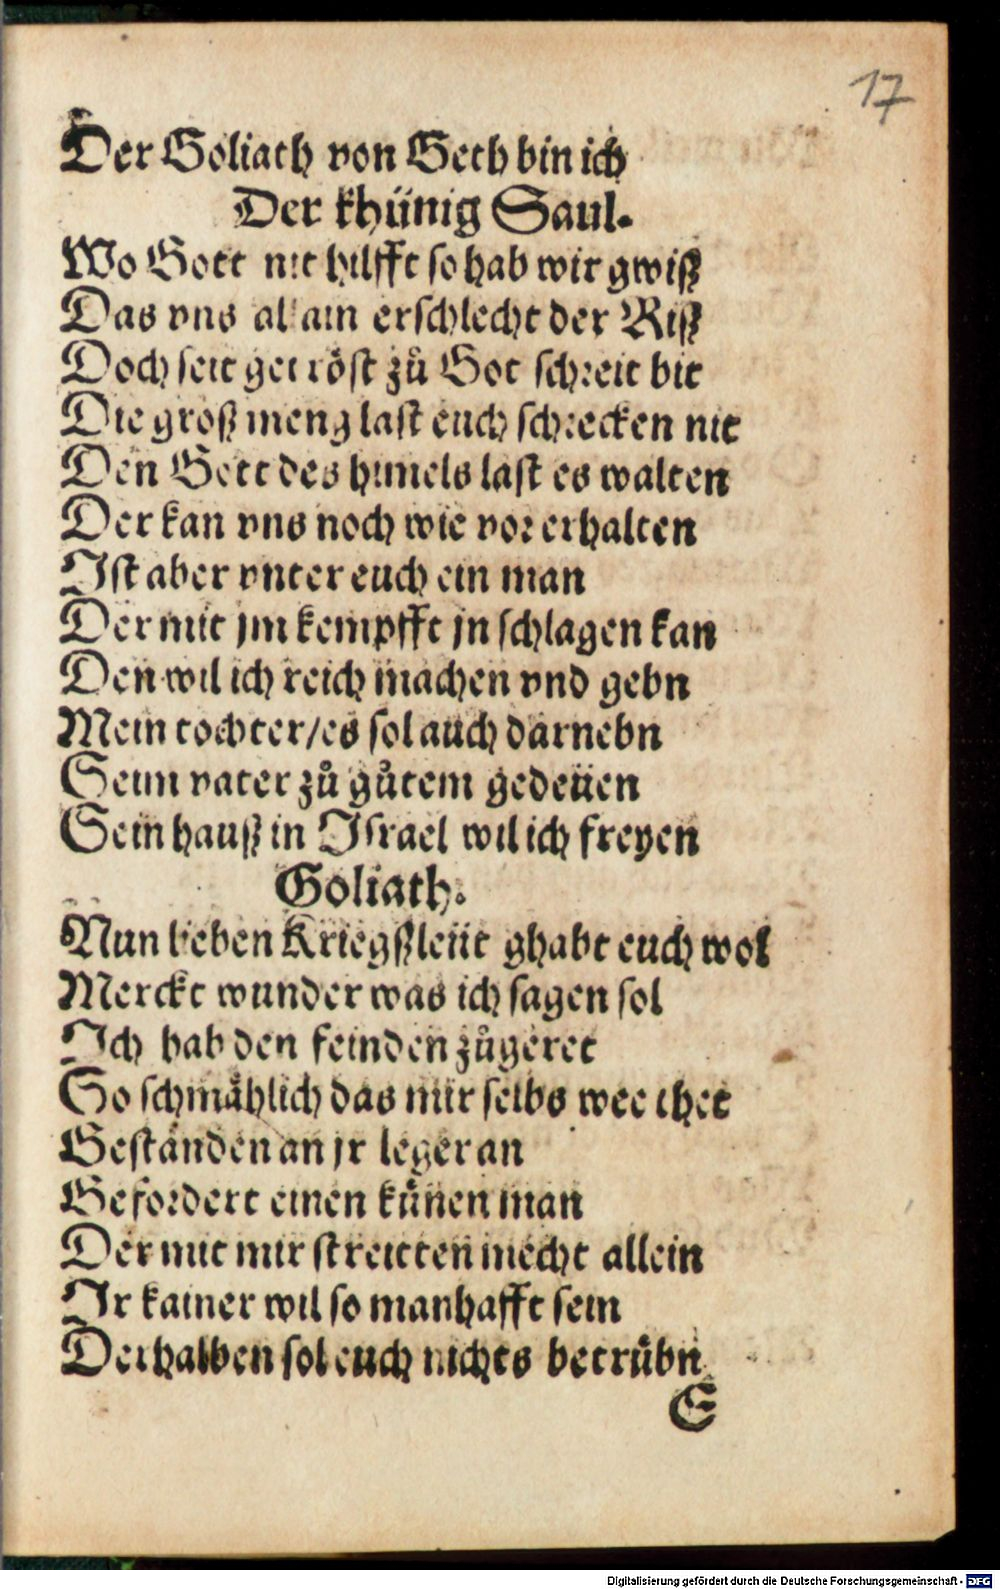 17
Der Goliath von Geth bin ich
Der khünig Saul.
Wo Gott nit hilfft so hab wir gwiß
Das vns allain erschlecht der Riß
Doch seit getröst zů Got schreit bit
Die groß meng last euch schrecken nit
Den Gott des himels last es walten
Der kan vns noch wie vor erhalten
Ist aber vnter euch ein man
Der mit jm kempfft jn schlagen kan
Den wil ich reich machen vnd gebn
Mein tochter/es sol auch darnebn
Seim vater zů gůtem gedeüen
Sein hauß in Israel wil ich freyen
Goliath.
Nun lieben Kriegßleüt ghabt euch wol
Merckt wunder was ich sagen sol
Ich hab den feinden zůgeret
So schmählich das mir selbs wee thet
Gestanden an jr leger an
Gefordert einen künen man
Der mit mir streitten mecht allein
Ir kainer wil so manhafft sein
Derhalben sol euch nichts betrübn
E
Digitalisierung gefördert durch die Deutsche Forschungsgemeinschaft - DFG